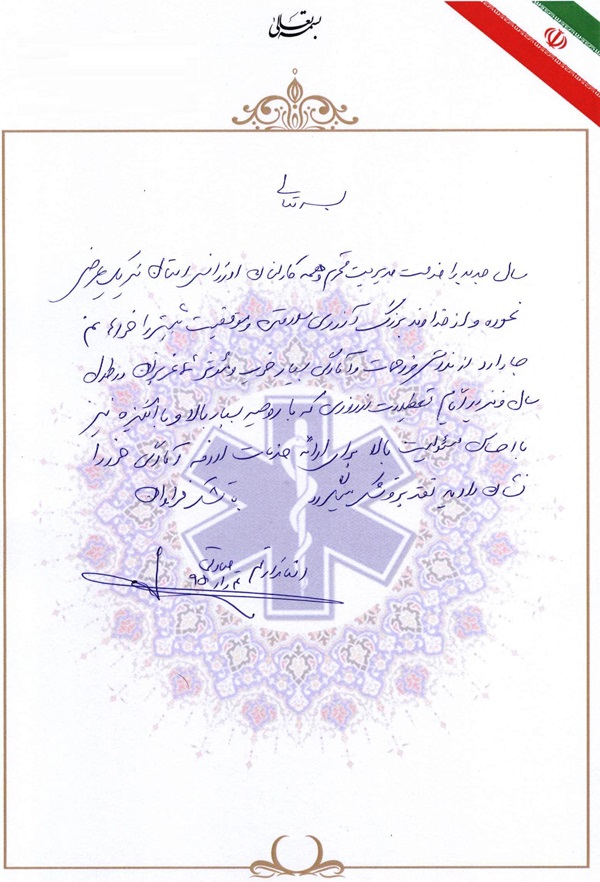 بسمه تعالی
بسمه تعالی
سال جدید را خدمت مدیریت محترم و همه کارکنان اورژانس استان تبریک عرض
نموده و از خداوند بزرگ آرزوی سلامتی و موفقیت بیشتر را خواهانم
جا دارد از تلاش و زحمات و آمادگی بسیار خوب و مؤثر شما عزیزان در طول
سال و نیز در ایام تعطیلات نوروزی که با روحیه بسیار بالا و با انگیزه نیز
با احساس مسئولیت بالا برای ارائه خدمات لازمه آمادگی خود را
نشان دادید تقدیر و تشکر با تشکر فراوان
استاندار قم صادقی
۹۵